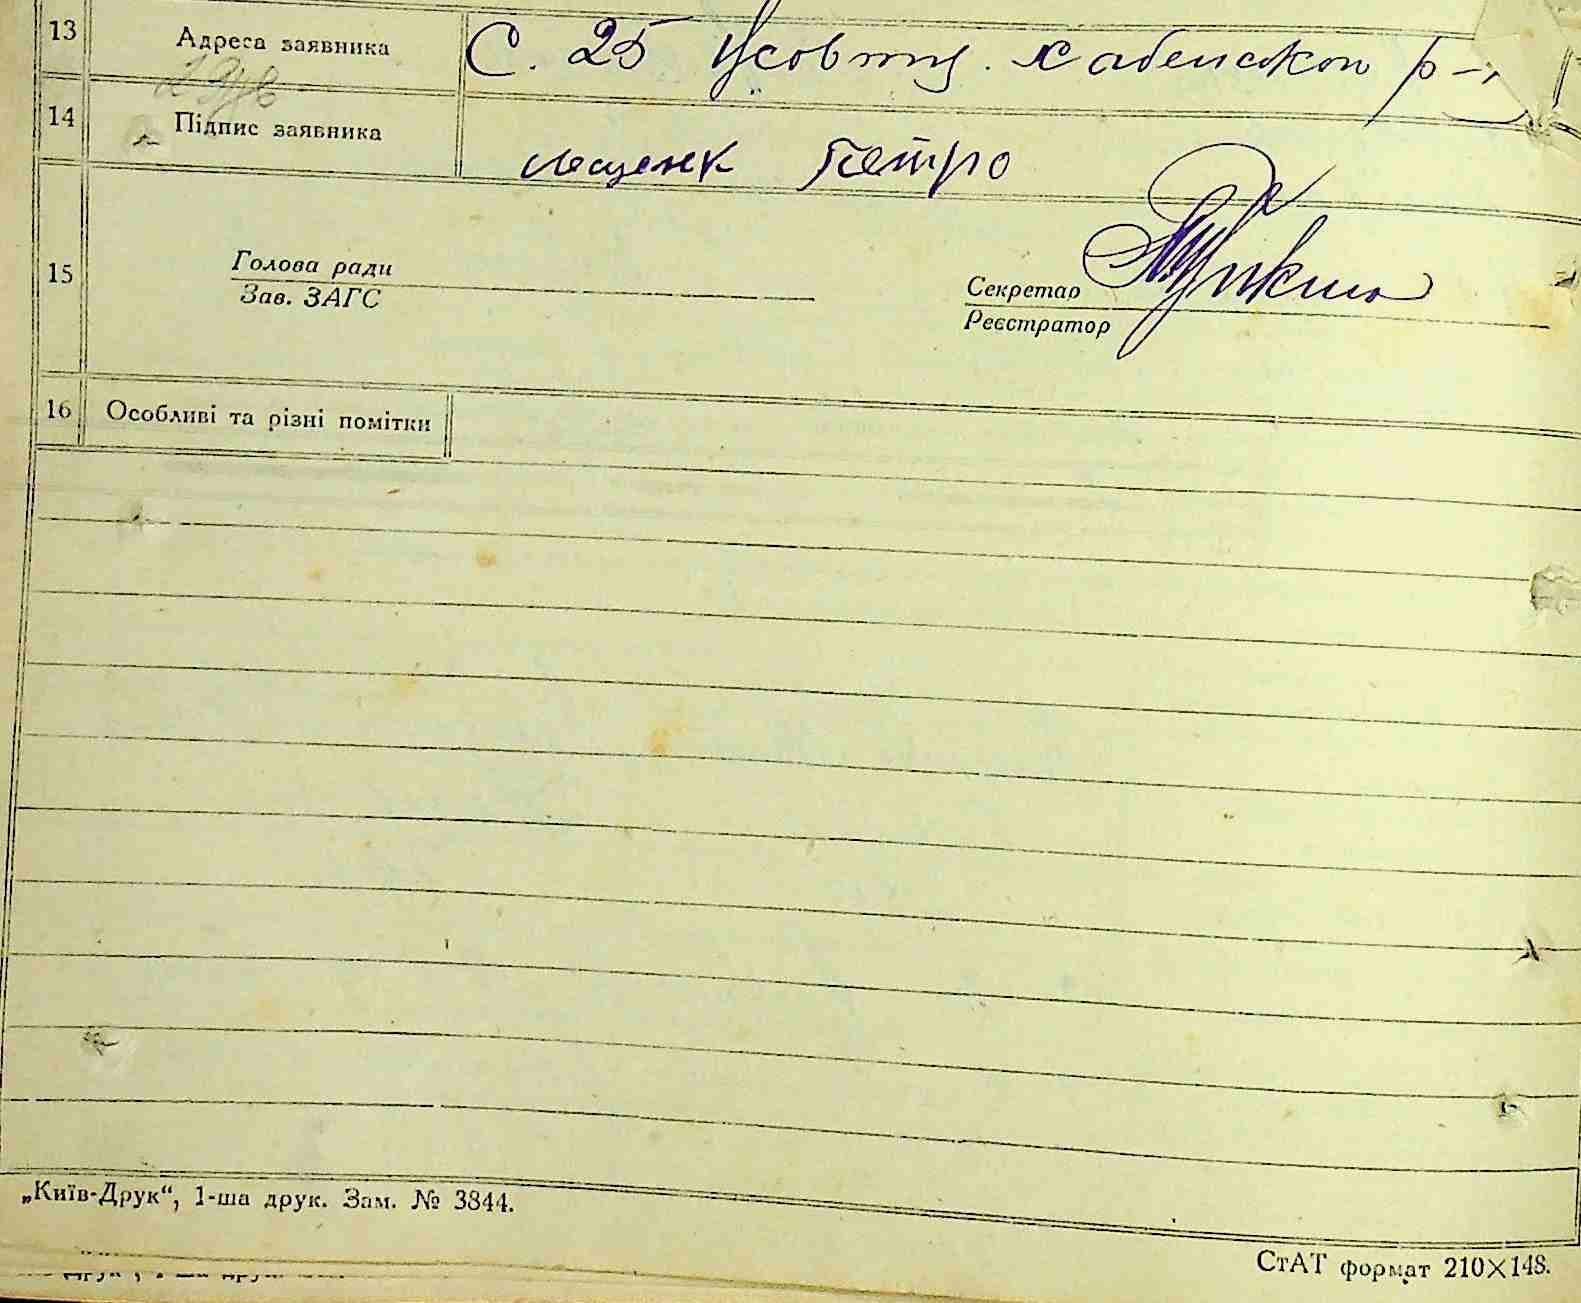 13 Адреса заявника С. 25 Жовтня. Хабенского р-
14 Підпис заявника Петро
15 Голова ради Секретар
Зав. ЗАГС Реєстратор
16 Особливі та різні помітки
„Київ-Друк“, 1-ша друк. Зам. № 3844.
СтАТ формат 210×148.